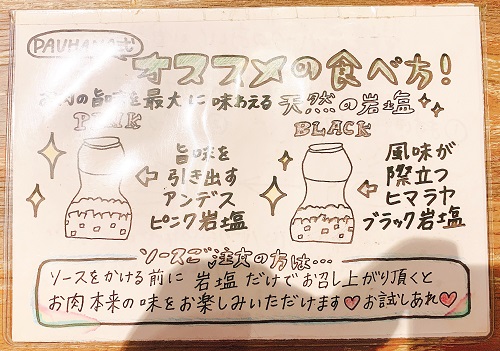 PAUHANA式
オススメの食べ方!
お肉の旨味を最大に味わえる 天然の岩塩
PINK
旨味を
引き出す
アンデス
ピンク岩塩
BLACK
風味が
際立つ
ヒマラヤ
ブラック岩塩
ソースご注文の方は…
ソースをかける前に 岩塩だけでお召し上がり頂くと
お肉本来の味をお楽しみいただけます♥お試しあれ♥